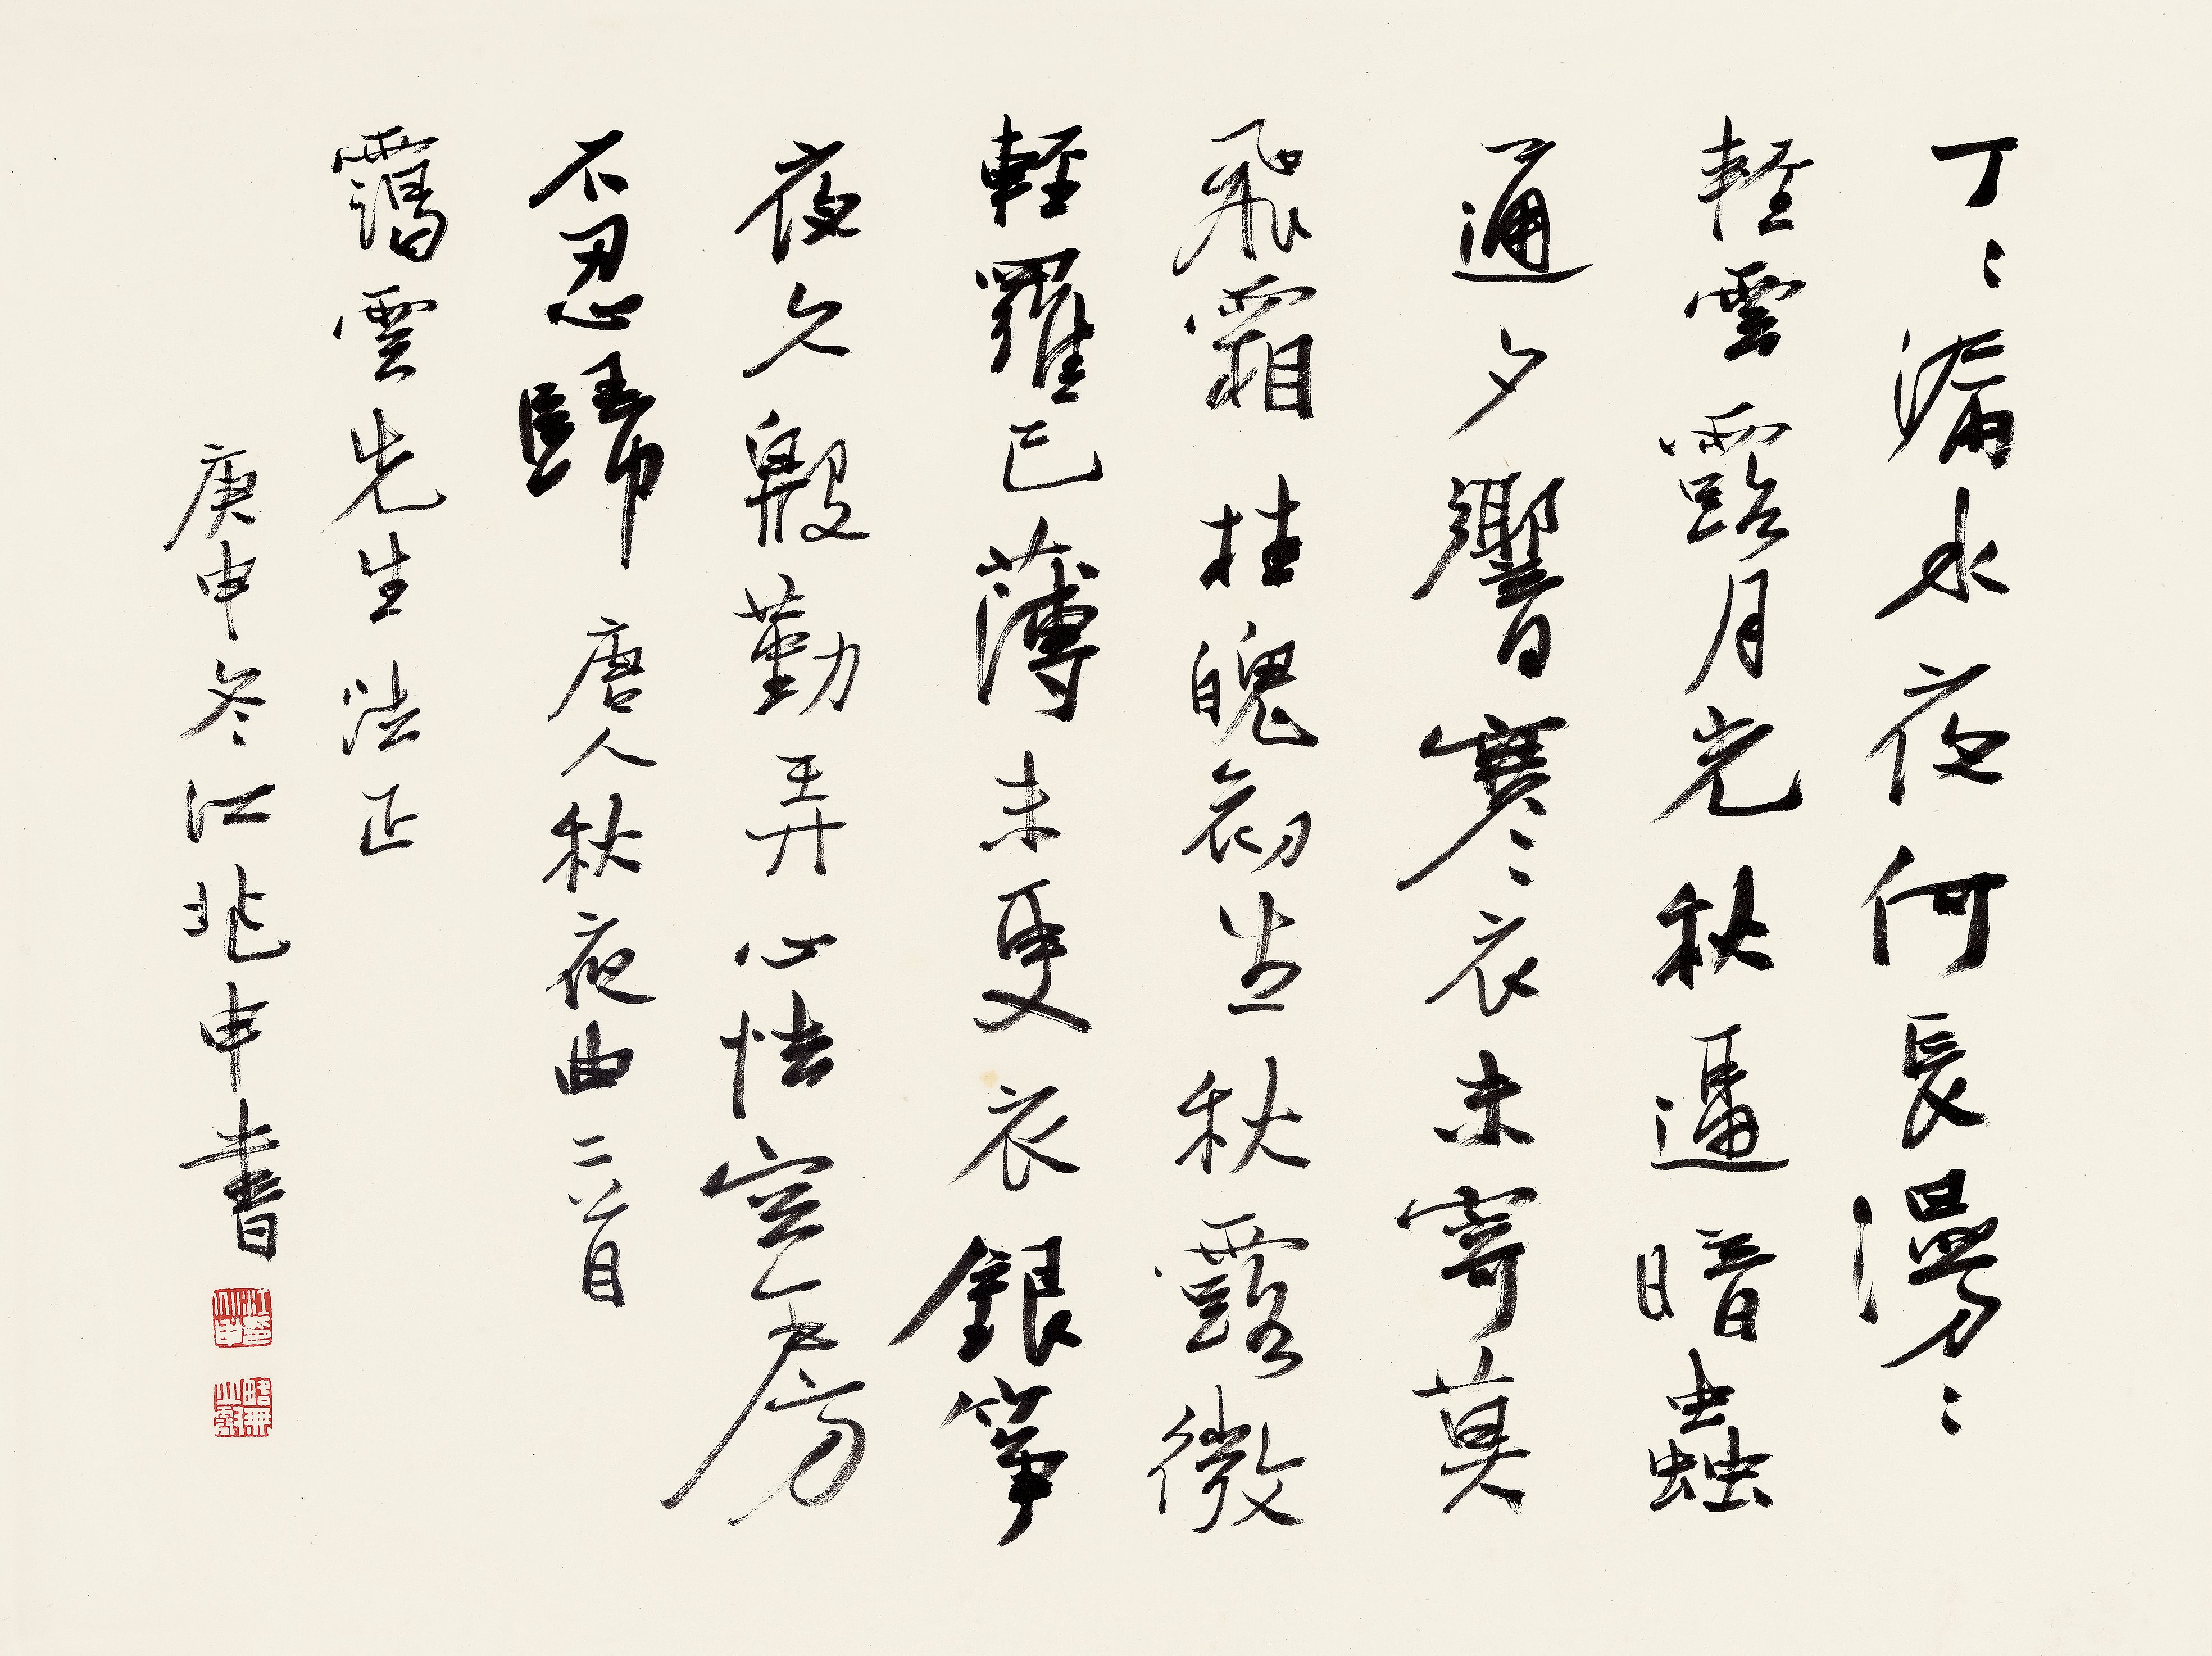 丁〻漏水夜何長漫〻
輕雲露月光秋逼暗蟲
通夕響寒〻衣未寄莫
飛霜桂魄初生秋露微
輕羅已薄未更衣銀箏
夜久殷勤弄心怯空房
不忍歸唐人秋夜曲二首
靄雲先生法正
庚申冬江兆申書
江兆申印